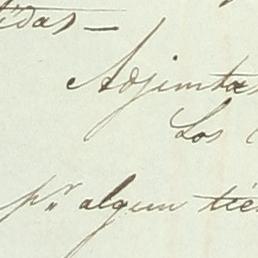 tidas —
Adjuntas
Los
pr. algun tie